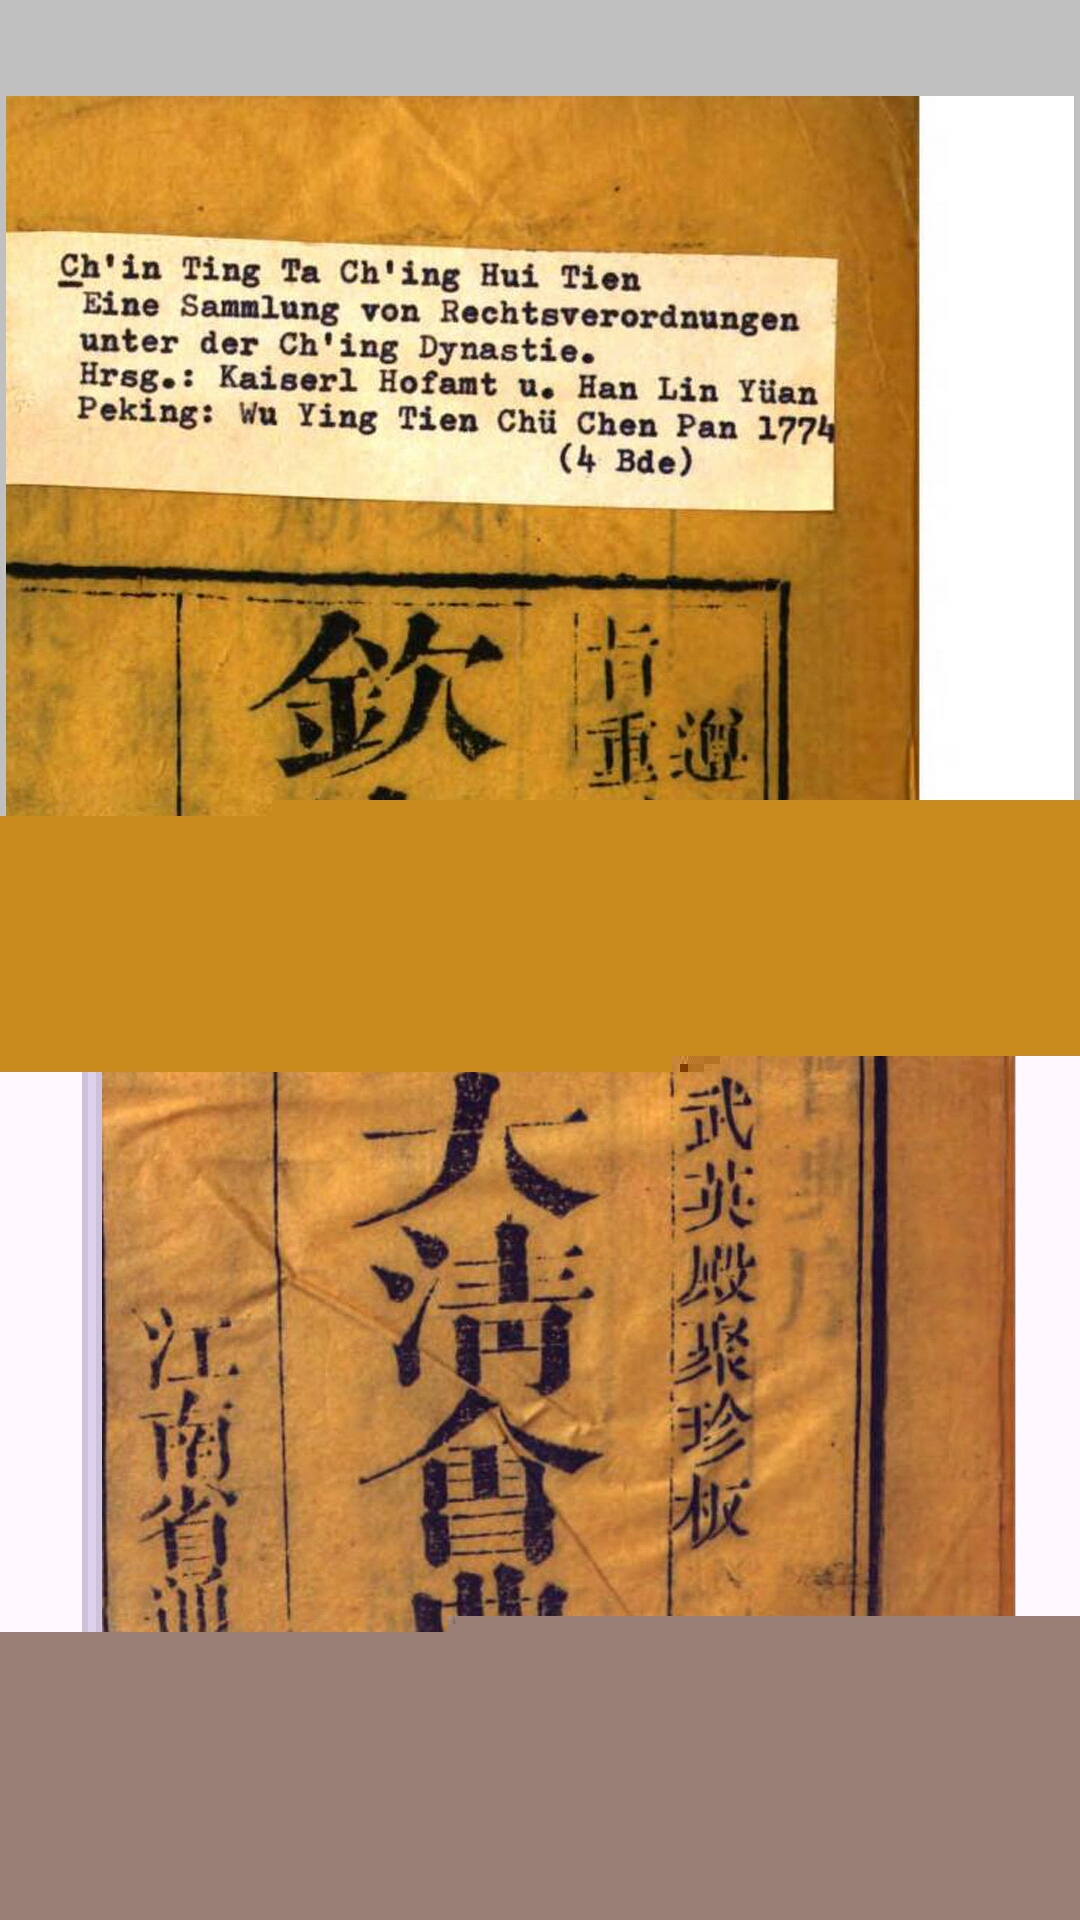 Ch'in Ting Ta Ch'ing Hui Tien
Eine Sammlung von Rechtsverordnungen
unter der Ch'ing Dynastie.
Hrsg.: Kaiserl Hofamt u. Han Lin Yüan
Peking: Wu Ying Tien Chü Chen Pan 1774
(4 Bde)
遵
旨重
武英殿聚珍板
欽
大清會典
江南省